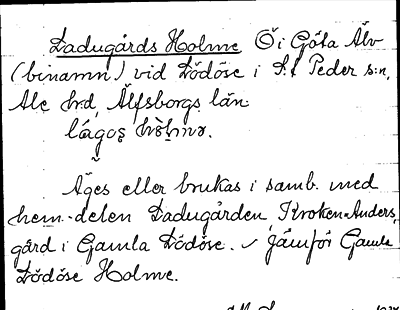 Ladugårds Holme Ö i Göta Älv
(binamn) vid Lödöse i S:t Peder s:n,
Ale hrd, Älfsborgs län.
Äges eller brukas i samb. med
hem.-delen Ladugården, Kroken-Anders,
gård i Gamla Lödöse. Jämför Gamla
Lödöse Holme.